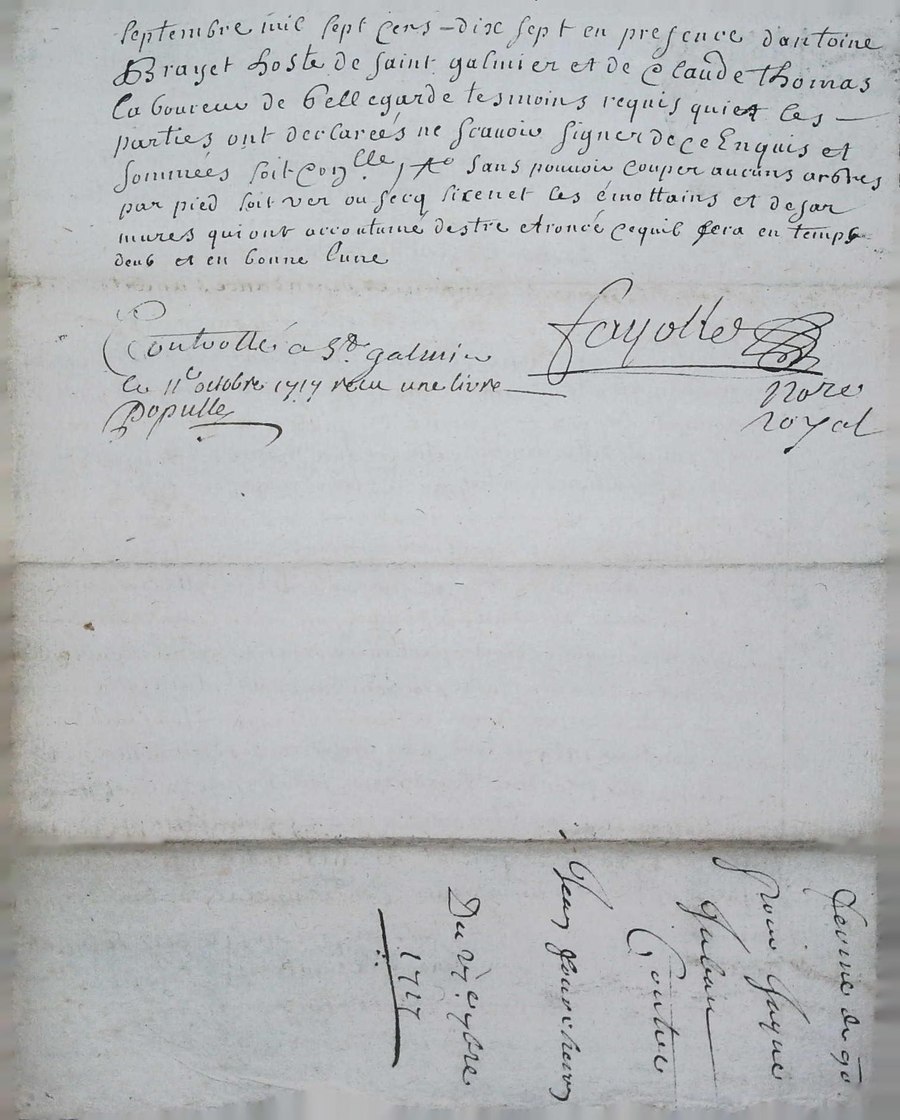 septembre mil sept cens-dix sept en presence dantoine
Brayet hoste de saint galmier et de Claude Thomas
laboureur de bellegarde tesmoins requis quiet les
parties ont declareés ne scavoir signer de ce Enquis et
sommées soit con^lle sans pouvoir couper aucuns arbres
par pied soit ver ou secq sicenet les émottains et desar
mures qui ont accoutumé destre etroncé cequil fera en temps
deub et en bonne lune
fayolle
Controllé a St galmier
le 11e octobre 1717 recu une livre
Populle
nore
royal
ferme de
pour Jaque
Contre
Jean
Du
1717